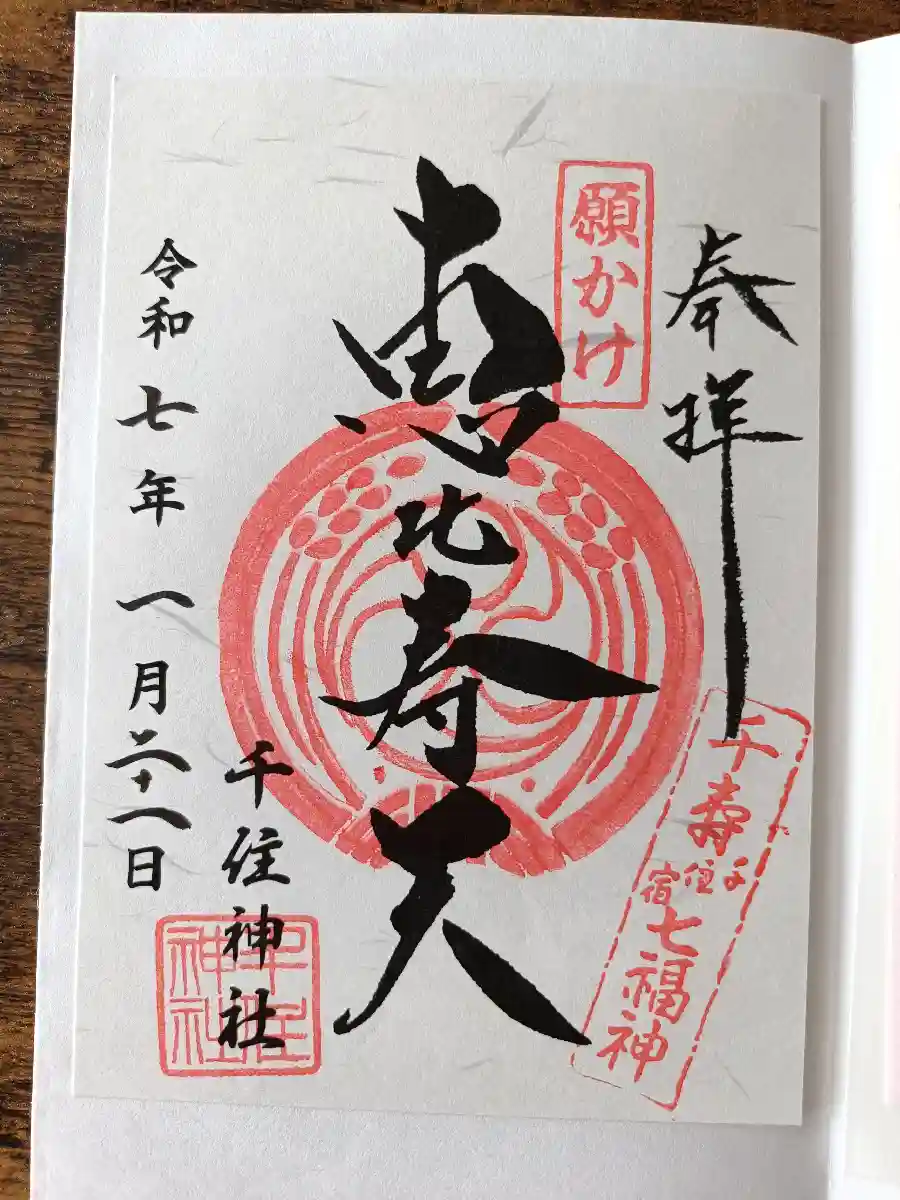 奉拝
願かけ
千寿七福神
千住宿
恵比寿天
千住神社
千住神社
令和七年一月二十一日